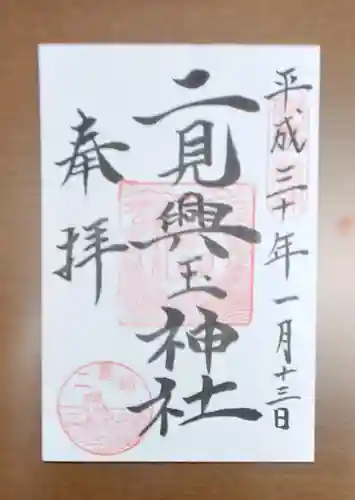 平成三十年一月十三日
二見興玉神社
奉拝